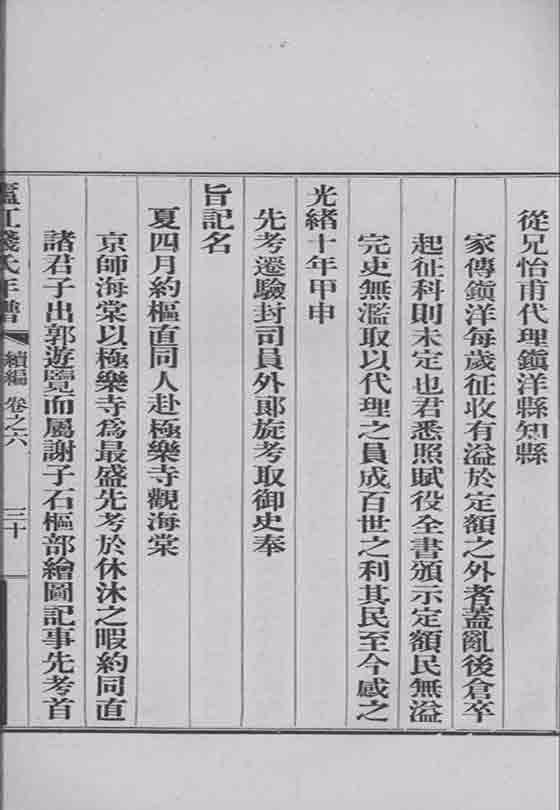 從兄怡甫代理鎭洋縣知縣
家傳鎭洋每歲征收有溢於定額之外者蓋亂後倉卒
起征科則未定也君悉照賦役全書頒示定額民無溢
完吏無濫取以代理之員成百世之利其民至今感之
光緒十年甲申
先考遷驗封司員外郞旋考取御史奉
旨記名
夏四月約樞直同人赴極樂寺觀海棠
京師海棠以極樂寺爲最盛先考於休沐之暇約同直
諸君子出郭遊覽而屬謝子石樞部繪圖記事先考首
廬江錢氏年譜 續編 卷之六 三十